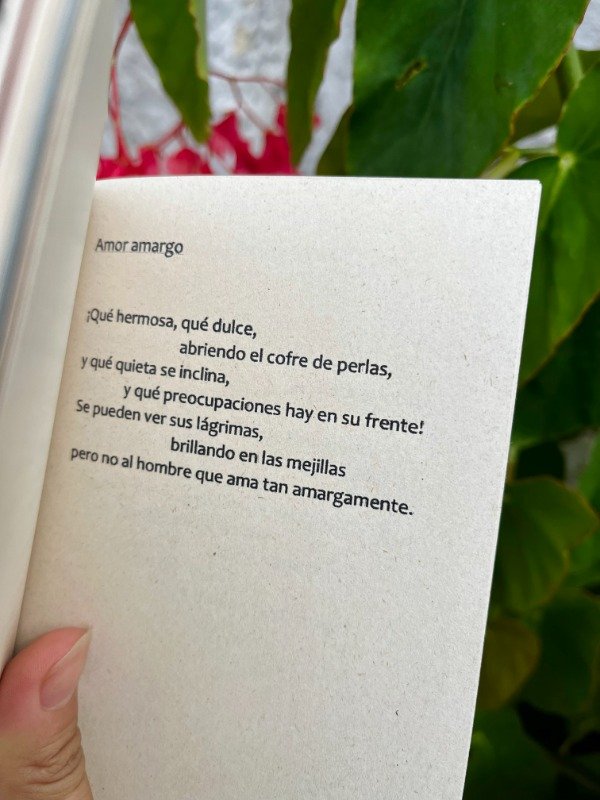 Amor amargo
¡Qué hermosa, qué dulce,
abriendo el cofre de perlas,
y qué quieta se inclina,
y qué preocupaciones hay en su frente!
Se pueden ver sus lágrimas,
brillando en las mejillas
pero no al hombre que ama tan amargamente.